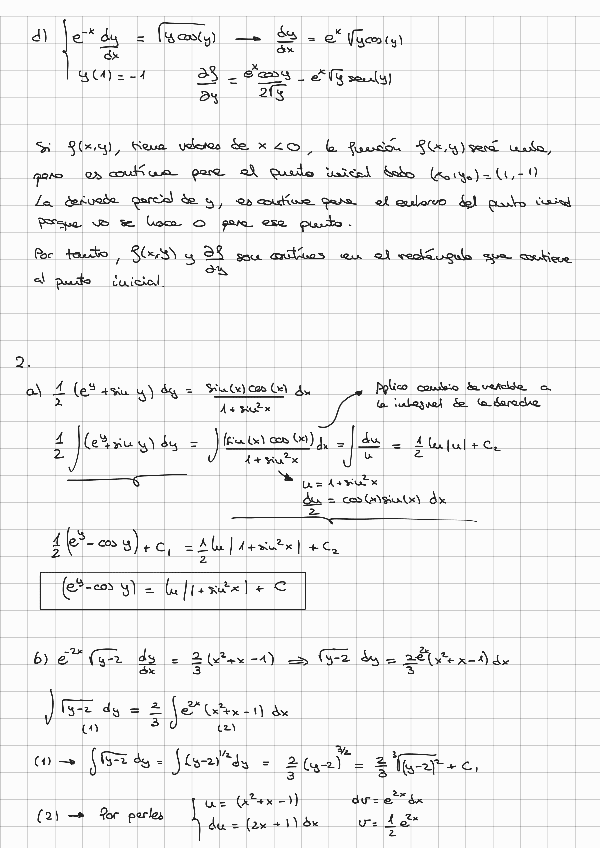 d) { e^-x dy/dx = √ycos(y) → dy/dx = e^x √y cos(y)
y(1) = -1   ∂f/∂y = e^x cos y / 2√y - e^x √y sen(y)
Si f(x,y), tiene valores de x<0, la función f(x,y) será nula,
pero es continua para el punto inicial dado (x₀,y₀) = (1,-1)
La derivada parcial de y, es continua para el entorno del punto inicial
porque no se hace 0 para ese punto.
Por tanto, f(x,y) y ∂f/∂y son continuas en el rectángulo que contiene
al punto inicial.
2.
a) 1/2 (e^y + sin y) dy = sin(x) cos(x) / 1 + sin²x dx → Aplico cambio de variable a
la integral de la derecha
1/2 ∫(e^y + sin y) dy = ∫ (sin(x) cos(x)) / 1 + sin²x dx = ∫ du/u = 1/2 ln|u| + C₂
u = 1 + sin²x
du/2 = cos(x) sin(x) dx
1/2 (e^y - cos y) + C₁ = 1/2 ln|1 + sin²x| + C₂
(e^y - cos y) = ln|1 + sin²x| + C
b) e^-2x √y-2 dy/dx = 2/3 (x² + x - 1) ⇒ √y-2 dy = 2/3 e^2x (x² + x - 1) dx
∫ √y-2 dy = 2/3 ∫ e^2x (x² + x - 1) dx
(1) (2)
(1) → ∫ √y-2 dy = ∫ (y-2)^1/2 dy = 2/3 (y-2)^3/2 = 2/3 ³√(y-2)² + C₁
(2) → Por partes { u = (x² + x - 1)   dv = e^2x dx
du = (2x + 1) dx   v = 1/2 e^2x